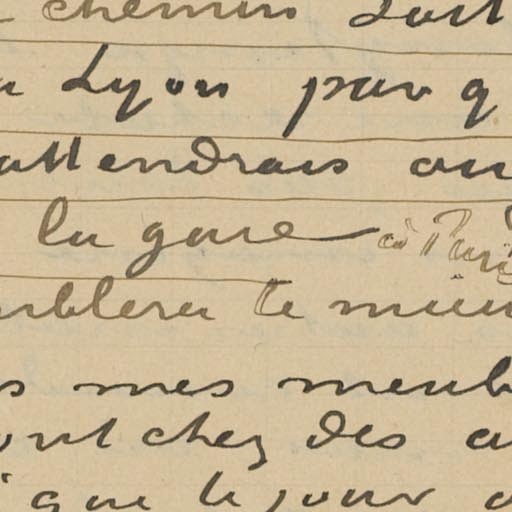 chemin doit
Lyon par q
attendrais au
la gare à Paris
mblera le mieu
s mes meub
ont chez des a
que le jour